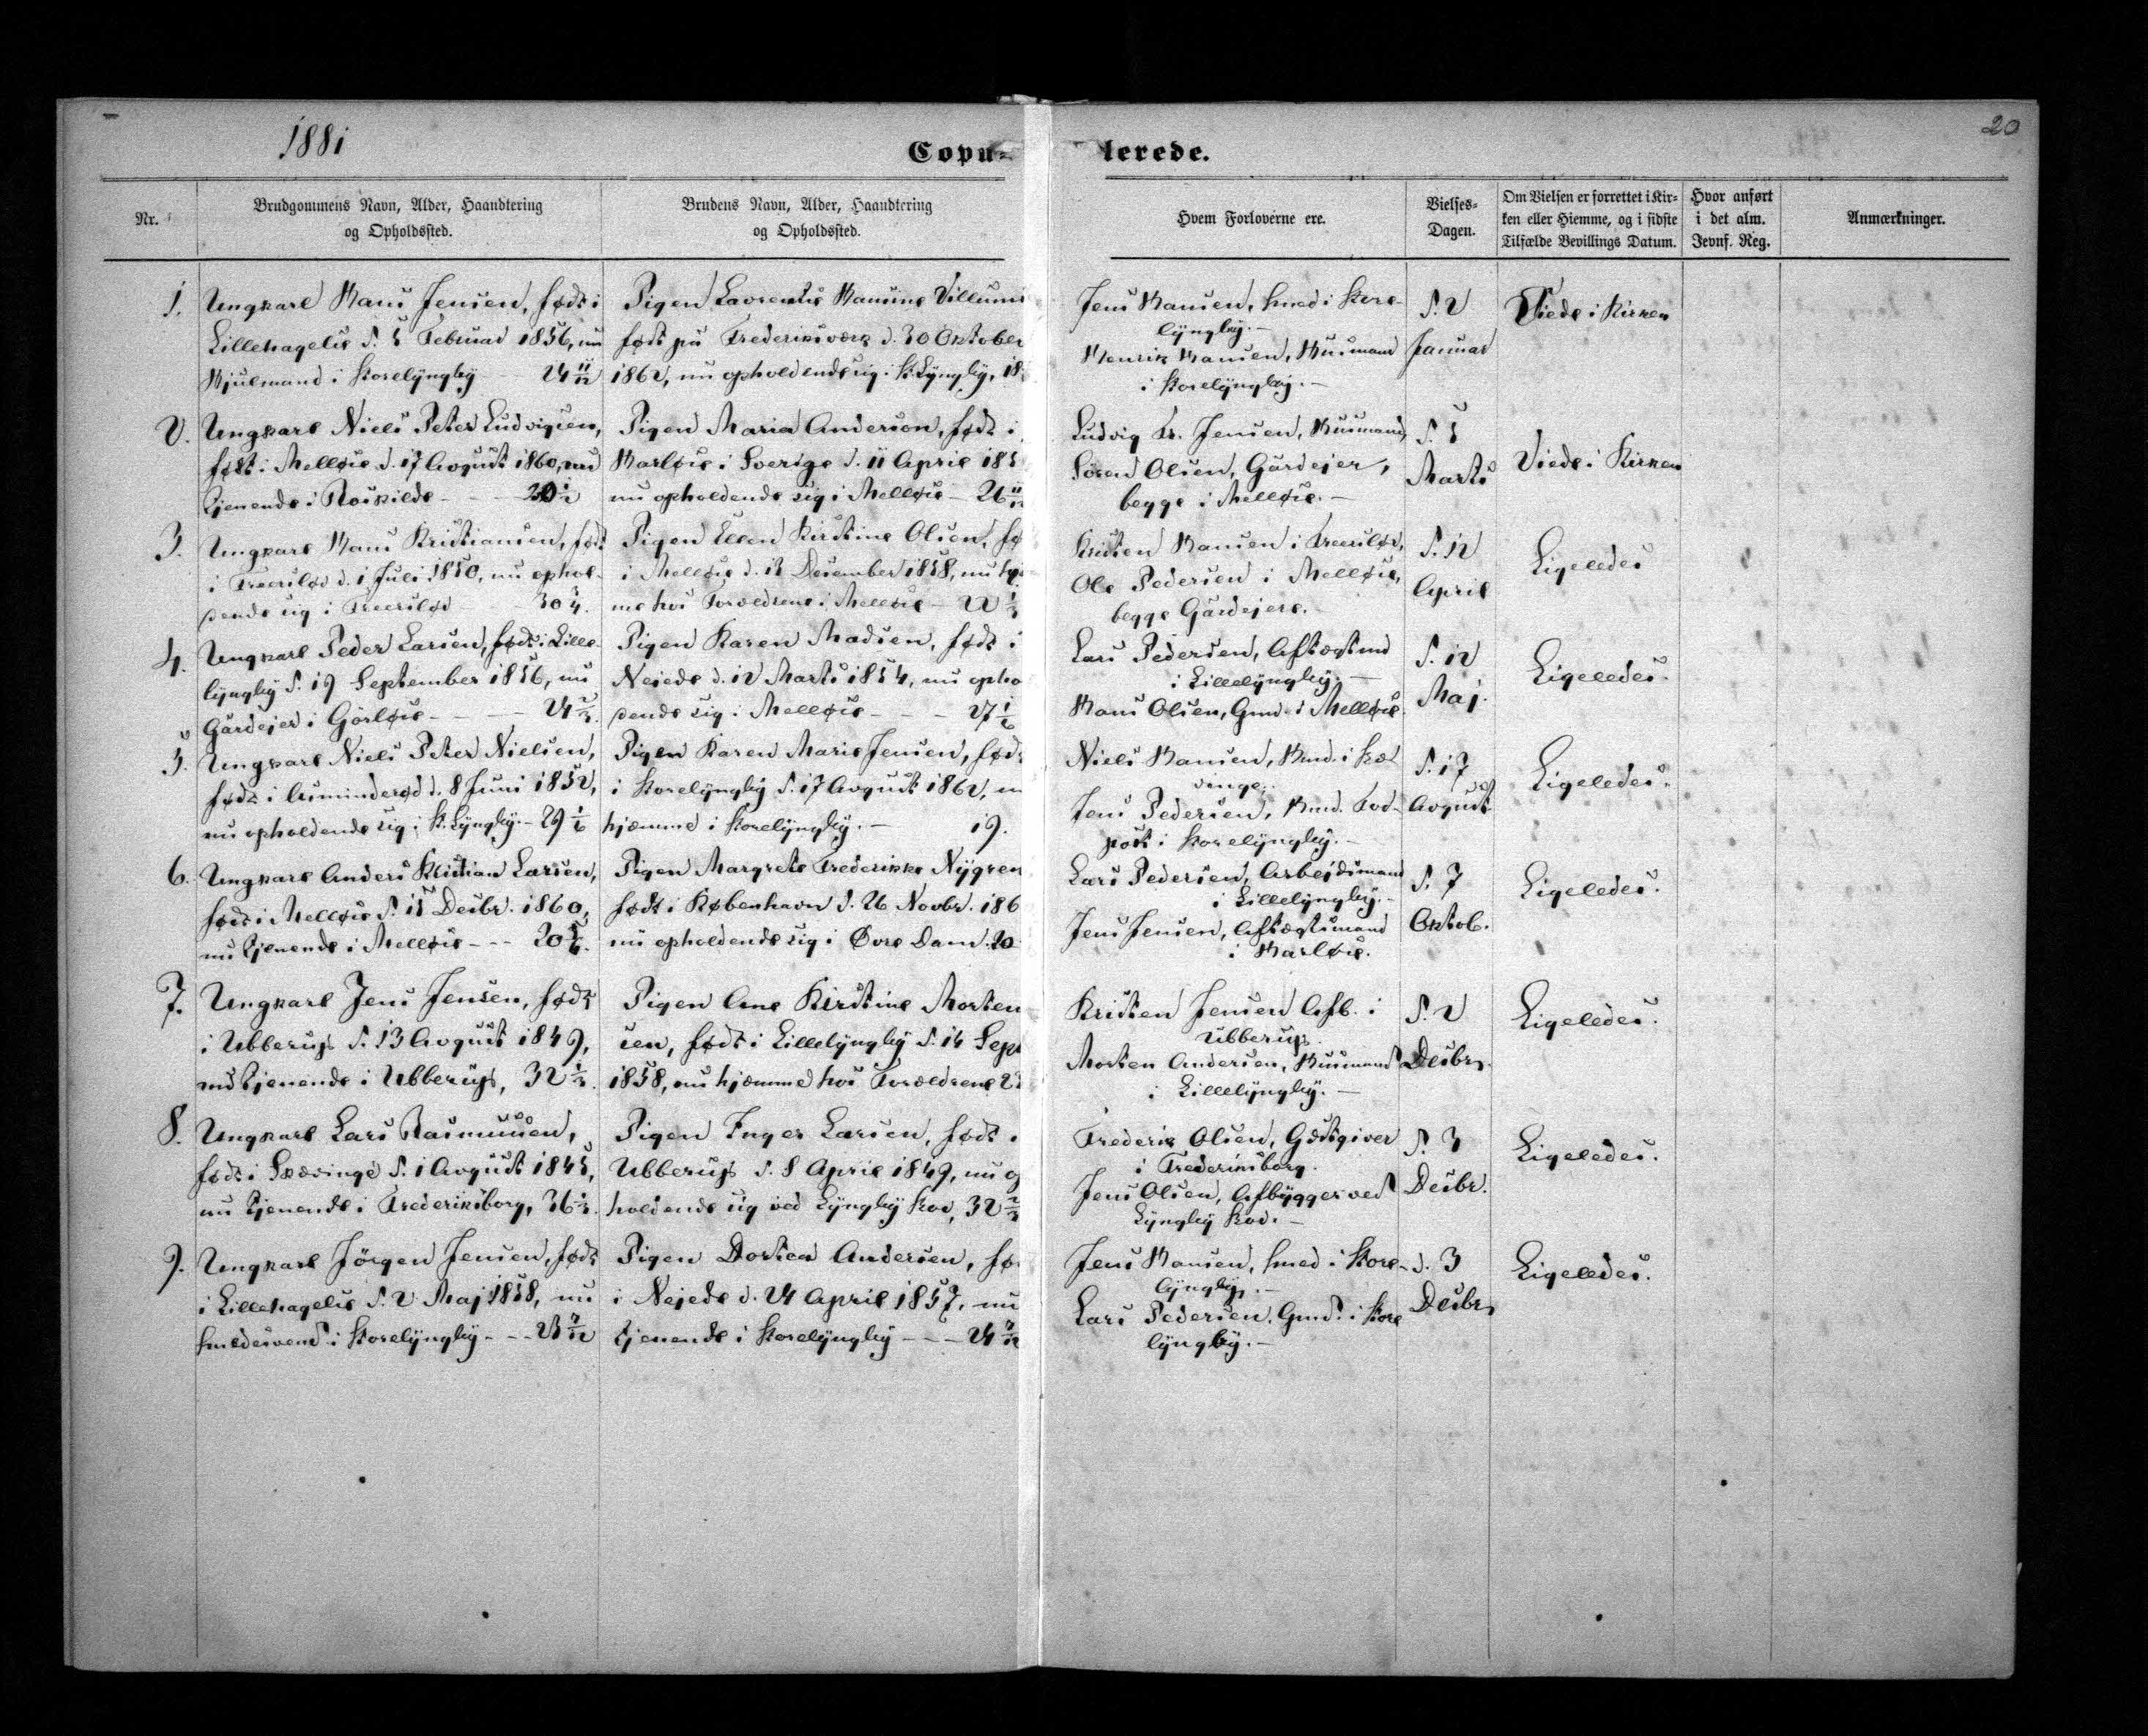 1881
20
Copu- lerede.
Nr.
Brudgommens Navn, Alder, Haandtering
og Opholdssted.
Brudens Navn, Alder, Haandtering
og Opholdssted.
Hvem Forloverne ere.
Vielses-
Dagen.
Om Vielsen er forrettet i Kir-
ken eller Hiemme, og i sidste
Tilfælde Bevillings Datum.
Hvor anført
i det alm.
Jevnf. Reg.
Anmærkninger.
1.
Ungkarl Hans Jensen, født i
Lillehagelse d. 5 Februar 1856, nu
Hjulmand i Storelyngby 24 11/12
Pigen Lavrentse Hansine Villums
født på Frederiksværk d. 30 Oktober
1862, nu opholdende sig i St. Lyngby, 18
Jens Hansen, Smed i Store-
lyngby. -
Henrik Hansen, Husmand
i Storelyngby. -
d. 2
Januar
Viede i Kirken
2.
Ungkarl Niels Peter Ludvigsen,
født i Melløse d. 17 Avgust 1860, nu
tjenende i Roskilde - - 20 1/2
Pigen Maria Anderson, født i
Harløse i Sverige d. 11 April 185
nu opholdende sig i Melløse - 26 11/12
Ludvig Kr. Jensen, Husmand,
Søren Olsen, Gårdejer,
begge i Melløse. -
d. 5
Marts
Viede i Kirken
3.
Ungkarl Hans Kristiansen, født
i Freerslev d. 1 Juli 1850, nu ophol-
dende sig i Freerslev 30 3/4.
Pigen Ellen Kirstine Olsen, fø
i Melløse d. 13 December 1858, nu hje
me hos Forældrene i Melløse - 22 1/3
Kristen Hansen i Freerslev,
Ole Pedersen i Melløse,
begge Gårdejere.
d. 12
April
Ligeledes
4.
Ungkarl Peder Larsen, født i Lille-
lyngby d. 19 September 1856, nu
Gårdejer i Gørløse - - - 24 2/3.
Pigen Karen Madsen, født i
Nejede d. 12 Marts 1854, nu opho
dende sig i Melløse - - - 27 1/6
Lars Pedersen, Aftægtmd
i Lillelyngby. -
Hans Olsen, Gmd. i Melløse.
d. 12
Maj.
Ligeledes.
5.
Ungkarl Niels Peter Nielsen,
født i Asminderød d. 8 Juni 1852,
nu opholdende sig i St. Lyngby. - 29 1/6
Pigen Karen Marie Jensen, født
i Storelyngby d. 17 Avgust 1862, n
hjemme i Storelyngby. - 19.
Niels Hansen, Hmd. i Skæ-
vinge.
Jens Pedersen, Hmd. Fod-
post i Storelyngby. -
d. 17
Avgust
Ligeledes.
6.
Ungkarl Anders Kristian Larsen,
født i Melløse d. 15 Decbr. 1860,
nu tjenende i Melløse - - - 20 5/6.
Pigen Margrete Frederikke Nygren
født i København d. 26 Novbr. 186
nu opholdende sig i Øvre Dam. 20
Lars Pedersen, Arbejdsmand
i Lillelyngby. -
Jens Jensen, Aftægtsmand
i Harløse.
d. 7
Oktob.
Ligeledes.
7.
Ungkarl Jens Jensen, født
i Ubberup d. 13 Avgust 1849,
nu tjenende i Ubberup, 32 1/3.
Pigen Ane Kirstine Morten
sen, født i Lillelyngby d. 14 Sept
1858, nu hjemme hos Forældrene 2
Kristen Jensen Afb. i
Ubberup.
Morten Andersen, Husmand
i Lillelyngby. -
d. 2
Decbr.
Ligeledes.
8.
Ungkarl Lars Rasmussen,
født i Skævinge d. 1 Avgust 1845,
nu tjenende i Frederiksborg, 36 1/3.
Pigen Inger Larsen, født i
Ubberup d. 8 April 1849, nu o
holdende sig ved Lyngby Skov, 32 2/3
Frederik Olsen, Gæstgiver
i Frederiksborg.
Jens Olsen, Afbygger ved
Lyngby Skov. -
d. 3
Decbr.
Ligeledes.
9.
Ungkarl Jørgen Jensen, født
i Lillehagelse d. 2 Maj 1858, nu
Smedesvend i Storelyngby - - 23 7/12
Pigen Dortea Andersen, fø
i Nejede d. 24 April 1857, nu
tjenende i Storelyngby - - - 24 7/12
Jens Hansen, Smed i Store-
lyngby. -
Lars Pedersen, Gmd. i Store
lyngby. -
d. 3
Decbr.
Ligeledes.